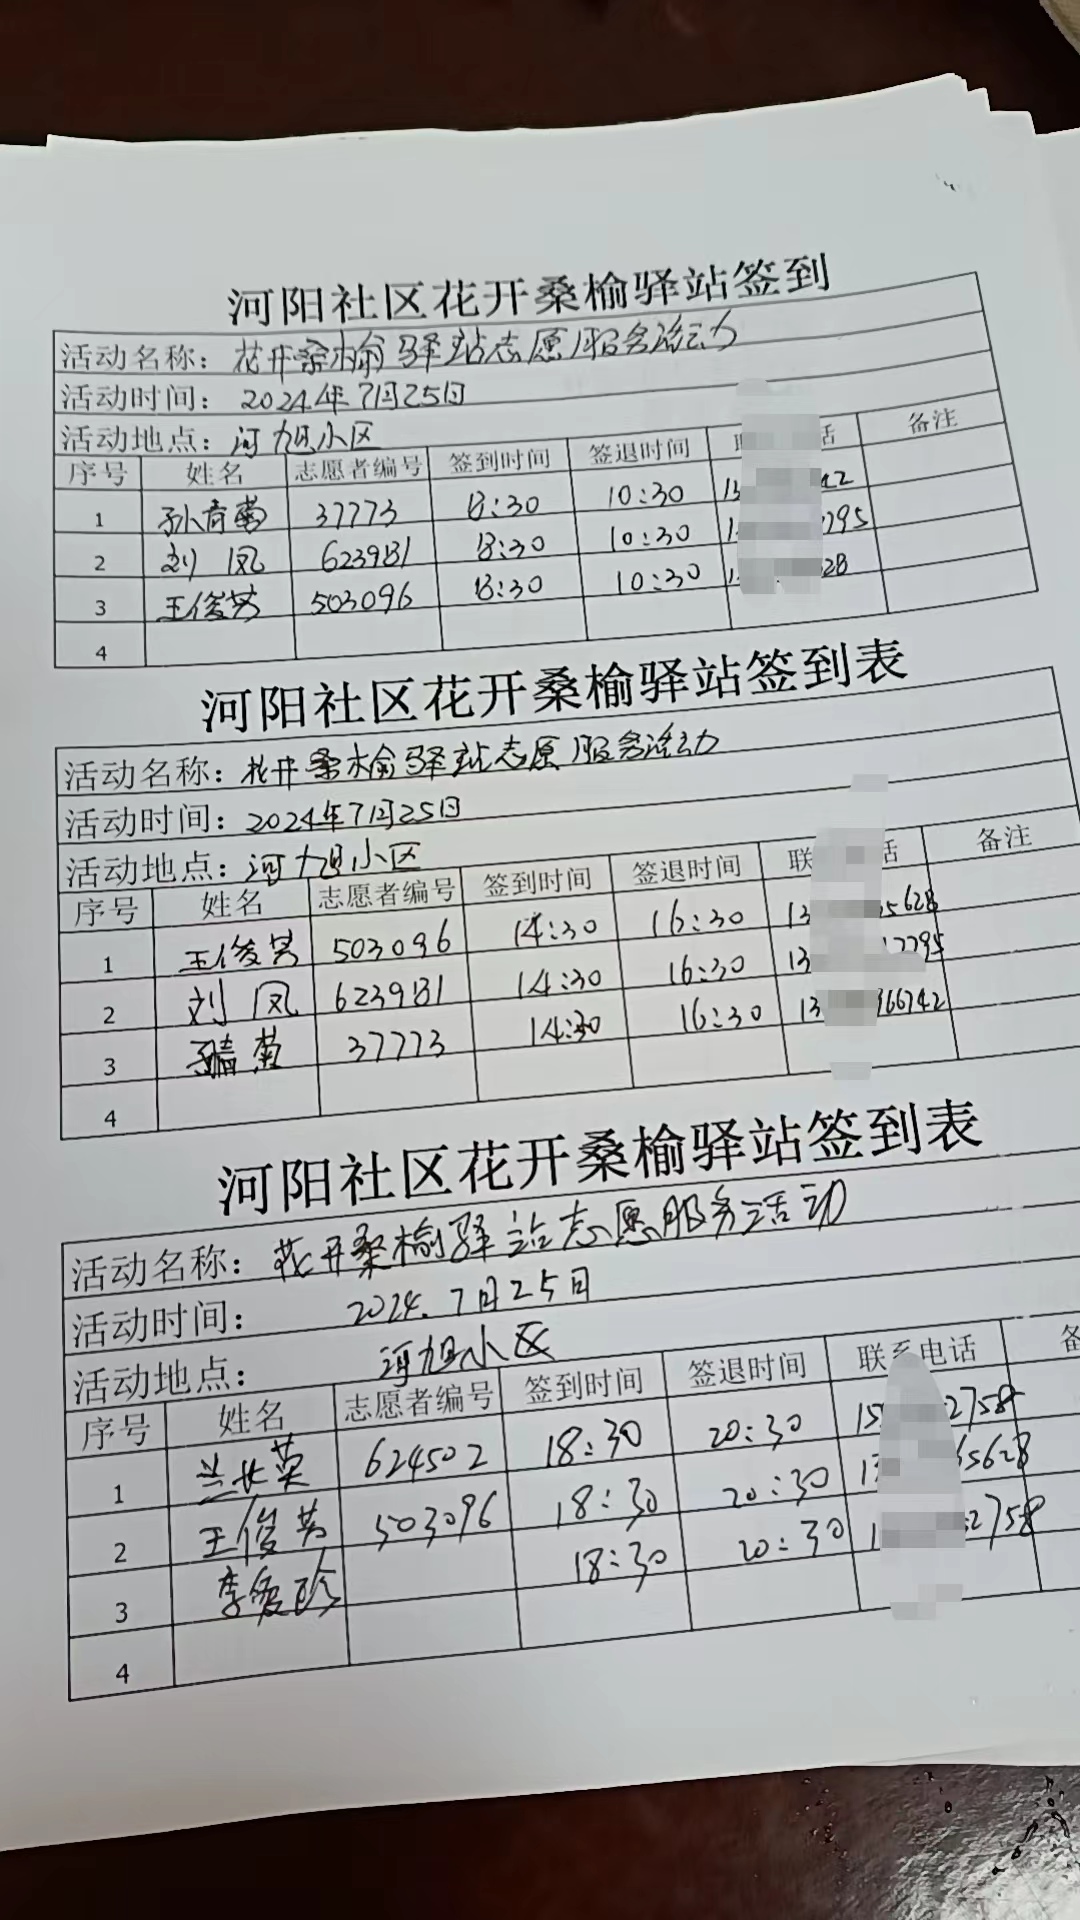 河阳社区花开桑榆驿站签到
活动名称：花开桑榆驿站志愿服务活动
活动时间：2024年7月25日
活动地点：河旭小区
序号 姓名 志愿者编号 签到时间 签退时间 话 备注
1 孙青菊 37773 8:30 10:30 13 42
2 刘凤 623981 8:30 10:30 1 795
3 王俊芳 503096 8:30 10:30 1 628
4
河阳社区花开桑榆驿站签到表
活动名称：花开桑榆驿站志愿服务活动
活动时间：2024年7月25日
活动地点：河旭小区
序号 姓名 志愿者编号 签到时间 签退时间 联 话 备注
1 王俊芳 503096 14:30 16:30 13 5628
2 刘凤 623981 14:30 16:30 13 7795
3 菊 37773 14:30 16:30 13 966742
4
河阳社区花开桑榆驿站签到表
活动名称：花开桑榆驿站志愿服务活动
活动时间：2024.7月25日
活动地点：河旭小区
序号 姓名 志愿者编号 签到时间 签退时间 联系电话 备
1 兰长英 624502 18:30 20:30 15 2758
2 王俊芳 503096 18:30 20:30 1 65628
3 李爱珍 18:30 20:30 1 2758
4